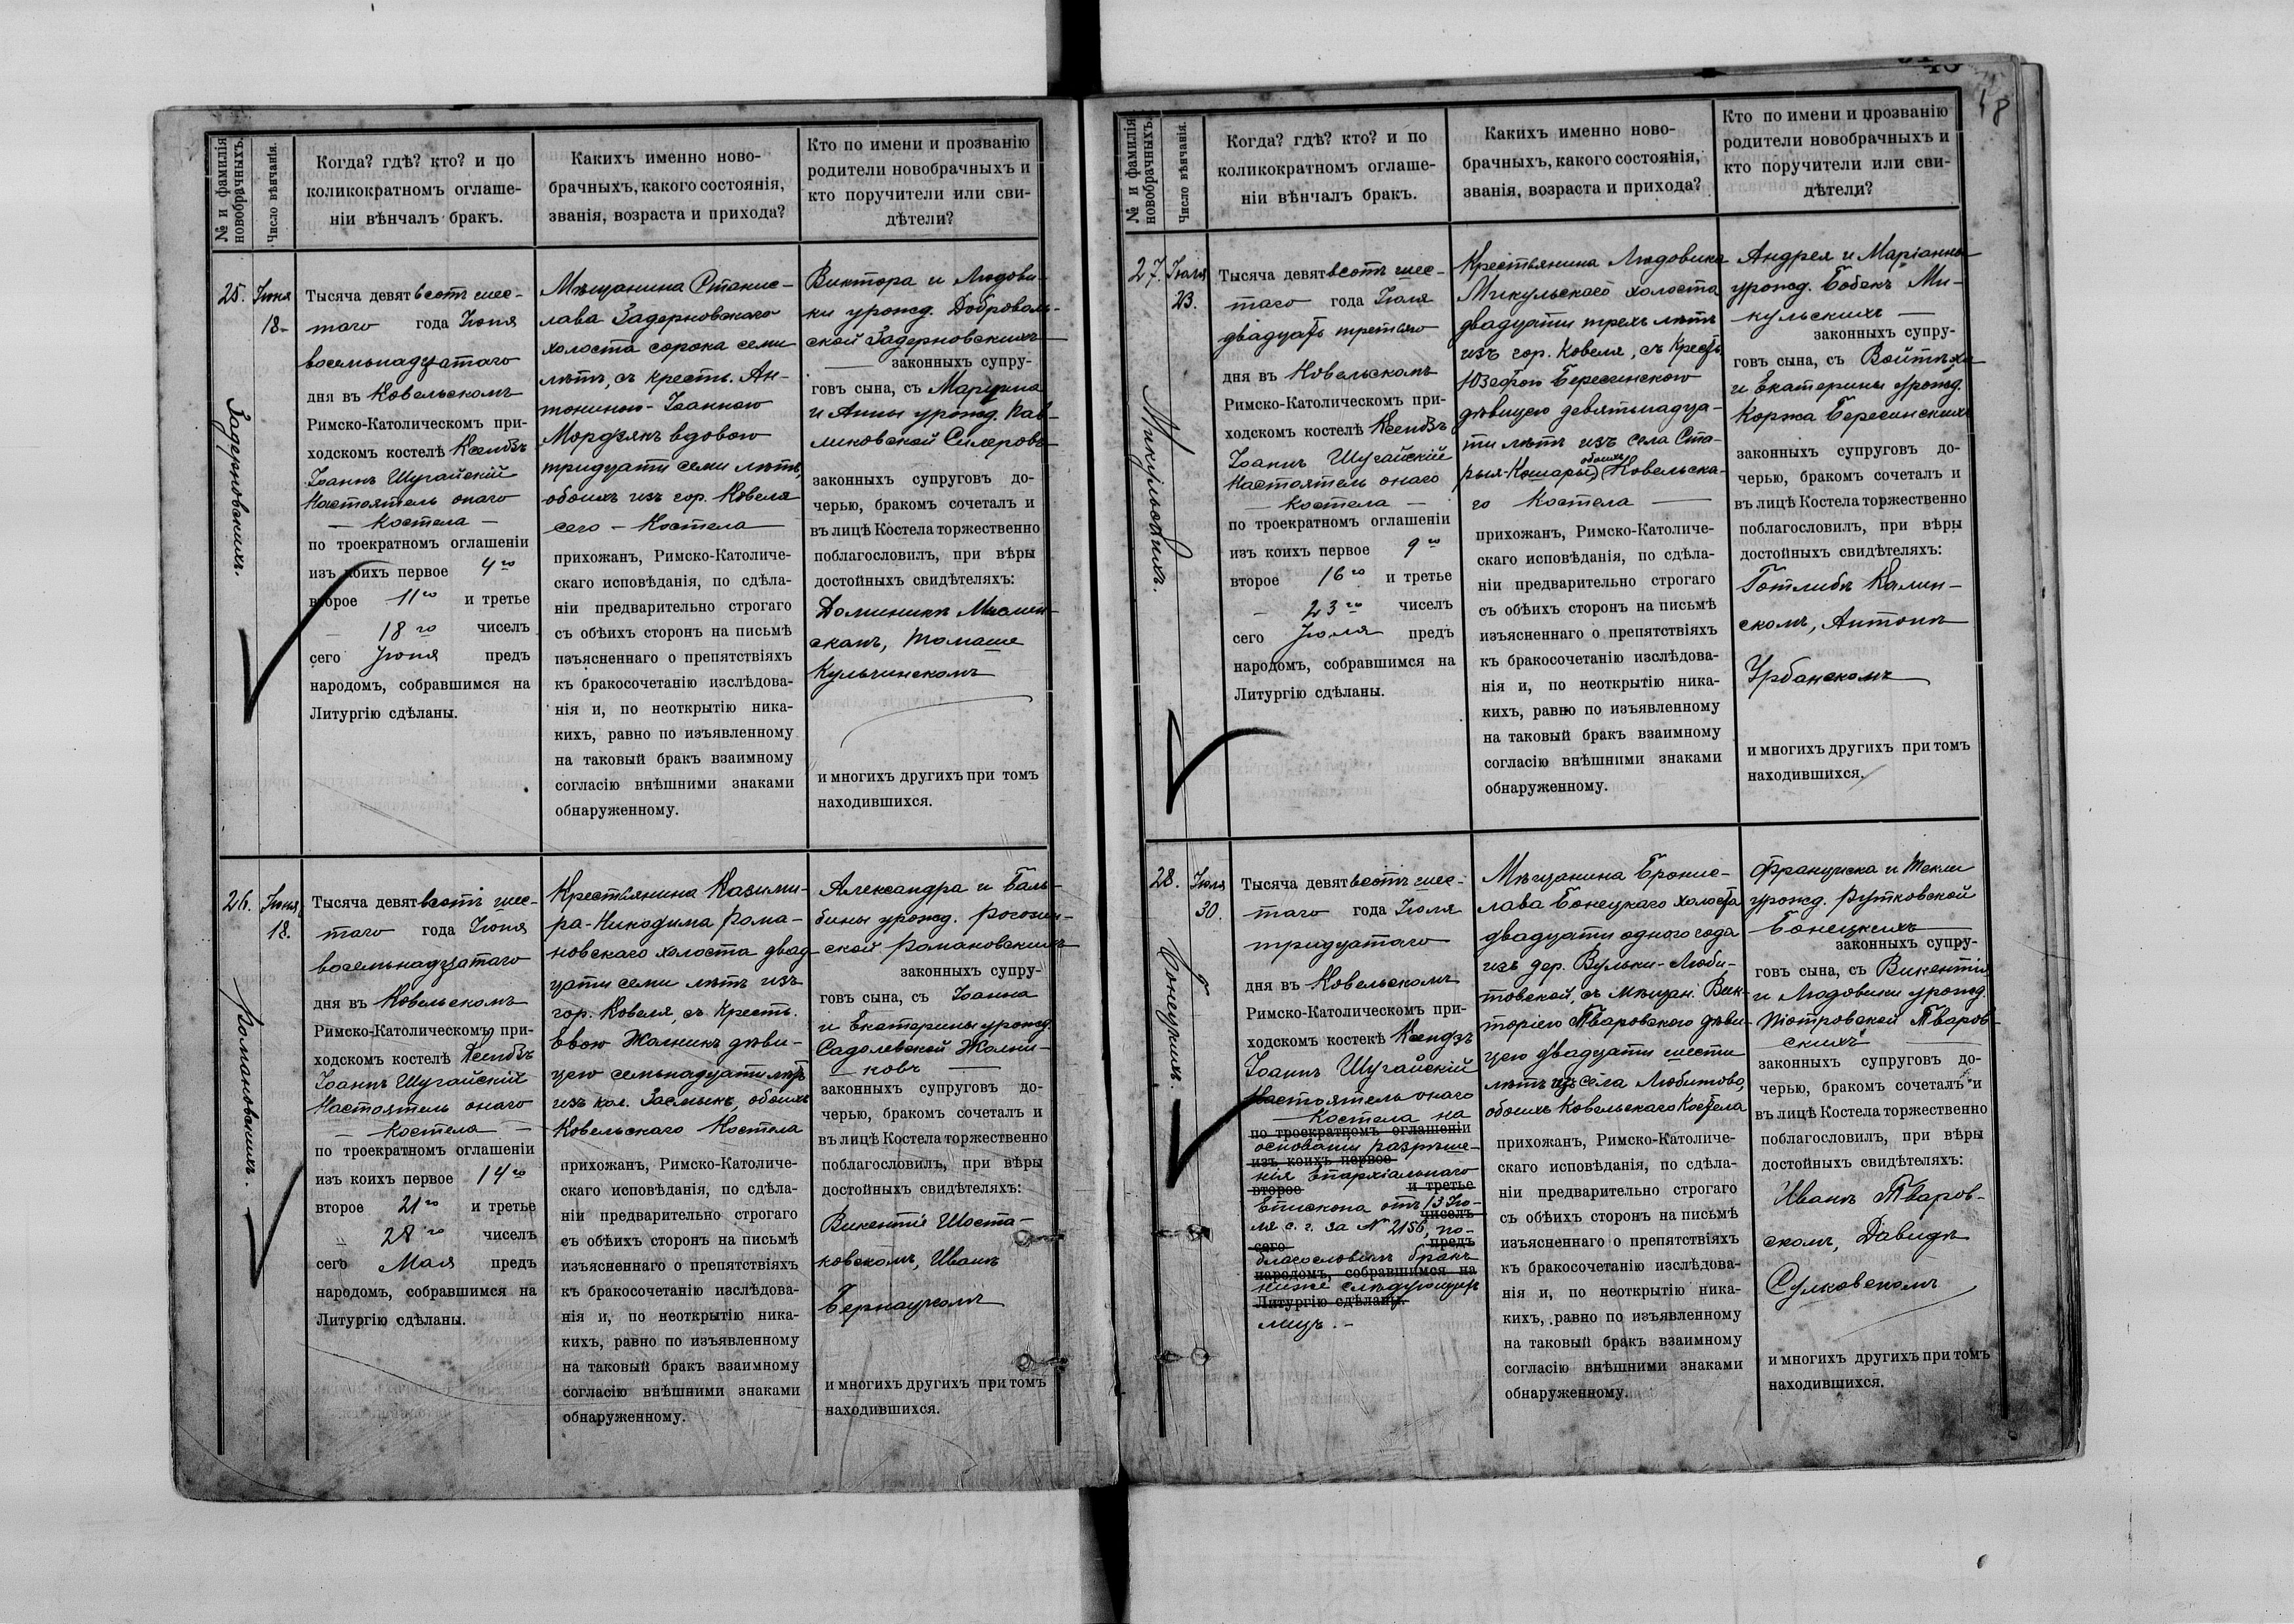 № и фамилія новобрачныхъ.
Число вѣнчанія.
Когда? гдѣ? кто? и по
коликократномъ оглаше-
ніи вѣнчалъ бракъ.
Какихъ именно ново-
брачныхъ, какого состоянія,
званія, возраста и прихода?
Кто по имени и прозванію
родители новобрачныхъ и
кто поручители или сви-
дѣтели?
25.
Задерновскихъ.
Іюня
18-
Тысяча девятьсотъ шес-
таго года Іюня
восемьнадцатаго
дня въ Ковельскомъ
Римско-Католическомъ при-
ходскомъ костелѣ Ксендзъ
Іоаннъ Шугайскій
Настоятель онаго
— Костела —
по троекратномъ оглашеніи
изъ коихъ первое 4го
второе 11го и третье
18го чиселъ
сего Іюня предъ
народомъ, собравшимся на
Литургію сдѣланы.
Мѣщанина Станис-
лава Задерновскаго
холоста сорока семи
лѣтъ, съ крестъ. Ан-
тониною-Іоанною
Мордзякъ вдовою
тридцати семи лѣтъ,
обоихъ изъ гор. Ковеля
сего — Костела
прихожанъ, Римско-Католиче-
скаго исповѣданія, по сдѣла-
ніи предварительно строгаго
съ обѣихъ сторонъ на письмѣ
изъясненнаго о препятствіяхъ
къ бракосочетанію изслѣдова-
нія и, по неоткрытію ника-
кихъ, равно по изъявленному
на таковый бракъ взаимному
согласію внѣшними знаками
обнаруженному.
Виктора и Людови-
ки урожд. Доброволь-
ской Задерновскихъ
законныхъ супру-
говъ сына, съ Марцина
и Анны урожд. Пав-
ликовской Силеровъ
законныхъ супруговъ до-
черью, бракомъ сочеталъ и
въ лицѣ Костела торжественно
поблагословилъ, при вѣры
достойныхъ свидѣтеляхъ:
Доминикѣ Маслин-
скомъ, Томаше
Кульчинскомъ
и многихъ другихъ при томъ
находившихся.
26.
Романовскихъ.
Іюня
18.
Тысяча девятьсотъ шес-
таго года Іюня
восемьнадцатаго
дня въ Ковельскомъ
Римско-Католическомъ при-
ходскомъ костелѣ Ксендзъ
Іоаннъ Шугайскій
Настоятель онаго
— Костела —
по троекратномъ оглашеніи
изъ коихъ первое 14го
второе 21го и третье
28го чиселъ
сего Мая предъ
народомъ, собравшимся на
Литургію сдѣланы.
Крестьянина Казими-
ра-Никодима Рома-
новскаго холоста двад-
цати семи лѣтъ изъ
гор. Ковеля, съ Крестъ.
Евою Жолникъ дѣви-
цею семьнадцати лѣтъ
изъ кол. Засмыкъ, обоихъ
Ковельскаго Костела
прихожанъ, Римско-Католиче-
скаго исповѣданія, по сдѣла-
ніи предварительно строгаго
съ обѣихъ сторонъ на письмѣ
изъясненнаго о препятствіяхъ
къ бракосочетанію изслѣдова-
нія и, по неоткрытію ника-
кихъ, равно по изъявленному
на таковый бракъ взаимному
согласію внѣшними знаками
обнаруженному.
Александра и Баль-
бины урожд. Рогозин-
ской Романовскихъ
законныхъ супру-
говъ сына, съ Іоанна
и Екатерины урожд.
Садолевской Жолни-
ковъ
законныхъ супруговъ до-
черью, бракомъ сочеталъ и
въ лицѣ Костела торжественно
поблагословилъ, при вѣры
достойныхъ свидѣтеляхъ:
Викентіе Шоста-
ковскомъ, Иванѣ
Бернацкомъ
и многихъ другихъ при томъ
находившихся.
48
№ и фамилія новобрачныхъ.
Число вѣнчанія.
Когда? гдѣ? кто? и по
коликократномъ оглаше-
ніи вѣнчалъ бракъ.
Какихъ именно ново-
брачныхъ, какого состоянія,
званія, возраста и прихода?
Кто по имени и прозванію
родители новобрачныхъ и
кто поручители или сви-
дѣтели?
27.
Микульскихъ.
Іюля
23.
Тысяча девятьсотъ шес-
таго года Іюля
двадцать третьяго
дня въ Ковельскомъ
Римско-Католическомъ при-
ходскомъ костелѣ Ксендзъ
Іоаннъ Шугайскій
Настоятель онаго
— Костела —
по троекратномъ оглашеніи
изъ коихъ первое 9го
второе 16го и третье
23го чиселъ
сего Іюля предъ
народомъ, собравшимся на
Литургію сдѣланы.
Крестьянина Людовика
Микульскаго холоста
двадцати трехъ лѣтъ
изъ гор. Ковеля, съ Крест.
Юзефою Бересинскою
дѣвицею девятьнадца-
ти лѣтъ изъ села Ста-
рыя-Кошары, обоихъ Ковельска-
го Костела
прихожанъ, Римско-Католиче-
скаго исповѣданія, по сдѣла-
ніи предварительно строгаго
съ обѣихъ сторонъ на письмѣ
изъясненнаго о препятствіяхъ
къ бракосочетанію изслѣдова-
нія и, по неоткрытію ника-
кихъ, равно по изъявленному
на таковый бракъ взаимному
согласію внѣшними знаками
обнаруженному.
Андрея и Маріанны
урожд. Бобекъ Ми-
кульскихъ —
законныхъ супру-
говъ сына, съ Войтѣха
и Екатерины урожд.
Коржа Бересинскихъ
законныхъ супруговъ до-
черью, бракомъ сочеталъ и
въ лицѣ Костела торжественно
поблагословилъ, при вѣры
достойныхъ свидѣтеляхъ:
Готлибѣ Калин-
скомъ, Антонѣ
Урбанскомъ
и многихъ другихъ при томъ
находившихся.
28.
Бонецкихъ.
Іюля
30.
Тысяча девятьсотъ шес-
таго года Іюля
тридцатаго
дня въ Ковельскомъ
Римско-Католическомъ при-
ходскомъ костелѣ Ксендзъ
Іоаннъ Шугайскій
Настоятель онаго
Костела на
по троекратномъ оглашеніи
основаніи разрѣше-
изъ коихъ первое
нія Епархіальнаго
второе и третье
Епископа отъ 13 Ію-
чиселъ
ля с. г. за № 2156, по-
сего предъ
благословилъ бракъ
народомъ, собравшимся на
ниже слѣдующихъ
Литургію сдѣланы.
лицъ. -
Мѣщанина Бронис-
лава Бонецкаго холоста
двадцати одного года
изъ дер. Вульки-Люби-
товской, съ мѣщан. Вик-
торіею Тваровского дѣви-
цею двадцати шести
лѣтъ изъ села Любитово,
обоихъ Ковельскаго Костела
прихожанъ, Римско-Католиче-
скаго исповѣданія, по сдѣла-
ніи предварительно строгаго
съ обѣихъ сторонъ на письмѣ
изъясненнаго о препятствіяхъ
къ бракосочетанію изслѣдова-
нія и, по неоткрытію ника-
кихъ, равно по изъявленному
на таковый бракъ взаимному
согласію внѣшними знаками
обнаруженному.
Францишка и Текли
урожд. Рутковской
Бонецкихъ
законныхъ супру-
говъ сына, съ Викентія
и Людовики урожд.
Піотровской Тваров-
скихъ
законныхъ супруговъ до-
черью, бракомъ сочеталъ и
въ лицѣ Костела торжественно
поблагословилъ, при вѣры
достойныхъ свидѣтеляхъ:
Иванѣ Тваров-
скомъ, Давидѣ
Сулковскомъ
и многихъ другихъ при томъ
находившихся.